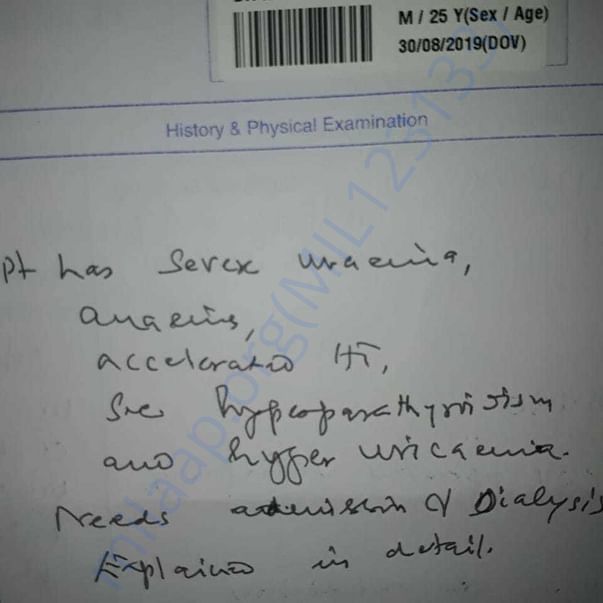 M / 25 Y(Sex / Age)
30/08/2019(DOV)
History & Physical Examination
Pt has Severe uraemia,
anaemia,
accelerated HT,
Sec hyperparathyroidism
and hyper uricaemia.
Needs admission & Dialysis
Explained in detail.
milaap.org(MIL123133)